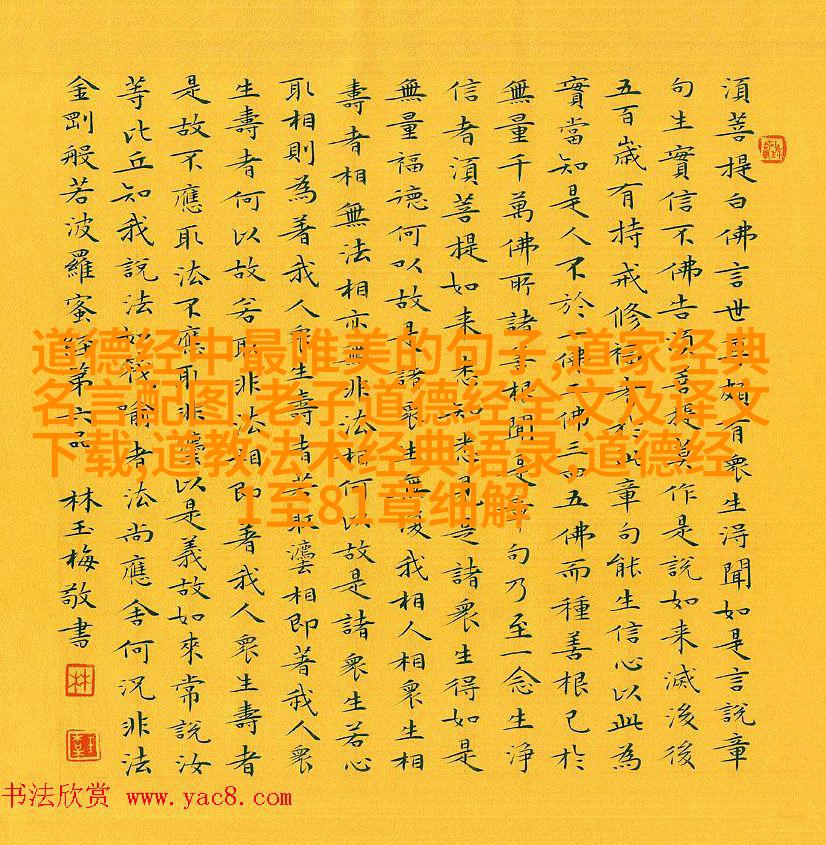 須菩提白佛言世尊頗有眾生得聞如是言說章
句生實信不佛告須菩提莫作是說如来滅後後
五百歲有持戒修福者於此章句能生信心以此為
實當知是人不於一佛二佛三四五佛而種善根已於
無量千萬佛所諸善根聞是章句乃至一念生淨
信者須菩提如来悉知悉見是諸眾生得如是
無量福德何以故是諸眾生無復我相人相眾生相
壽者相無法相亦無非法相何以故是諸眾生若心
取相則為著我人眾生壽者若取法相即著我人眾
生壽者何以故若取非法相即著我人眾生壽者
是故不應取法不應取非法以是義故如來常說汝
等比丘知我說法如筏喻者法尚應舍何況非法
金剛般若波羅蜜經第六品 林玉梅敬書
林
道德经中最唯美的句子,道家经典
名言配图,老子道德经全文及译文
下载,道教法术经典语录,道德经
1至81章细解
书法欣赏 www.yac8.com